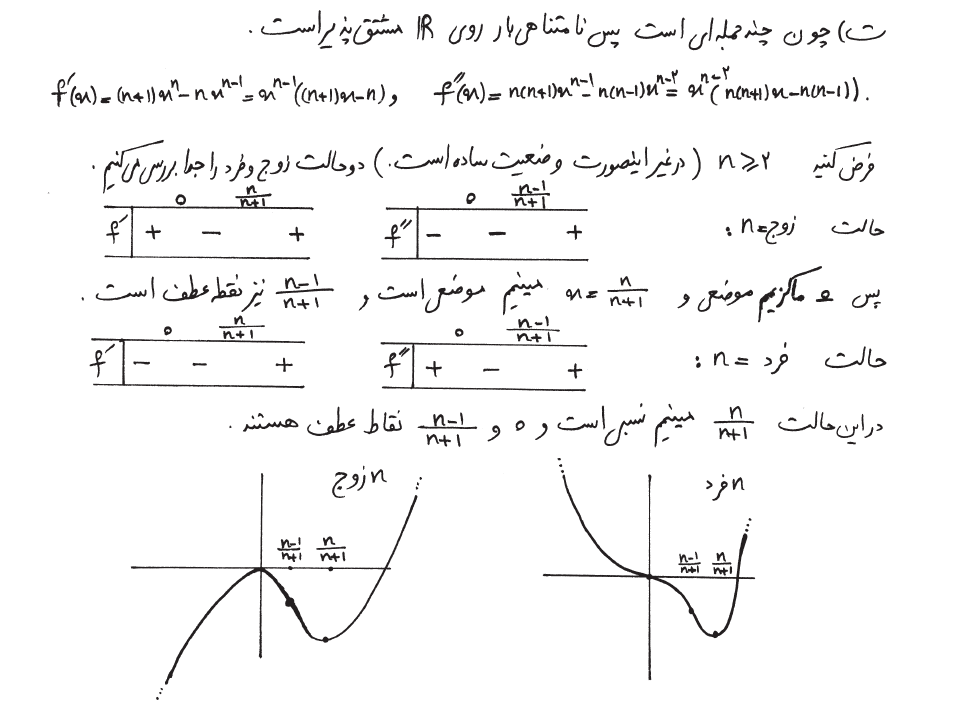 ت) چون چندجمله‌ای است پس نامتناهی بار روی IR مشتق‌پذیر است.
f′(x)=(n+1)xⁿ-nxⁿ⁻¹=xⁿ⁻¹((n+1)x-n) و f″(x)=n(n+1)xⁿ⁻¹-n(n-1)xⁿ⁻²=xⁿ⁻²(n(n+1)x-n(n-1)).
فرض کنید n≥2 (در غیر اینصورت وضعیت ساده است.) دو حالت زوج و فرد را جدا بررسی می‌کنیم.
حالت زوج=n:
0 n/(n+1)
f′ + - +
0 (n-1)/(n+1)
f″ - - +
پس 0 ماکزیم موضعی و x=n/(n+1) مینیم موضعی است و (n-1)/(n+1) نیز نقطه عطف است.
حالت فرد=n:
0 n/(n+1)
f′ - - +
0 (n-1)/(n+1)
f″ + - +
در این حالت n/(n+1) مینیم نسبی است و 0 و (n-1)/(n+1) نقاط عطف هستند.
n زوج
(n-1)/(n+1) n/(n+1)
n فرد
(n-1)/(n+1) n/(n+1)